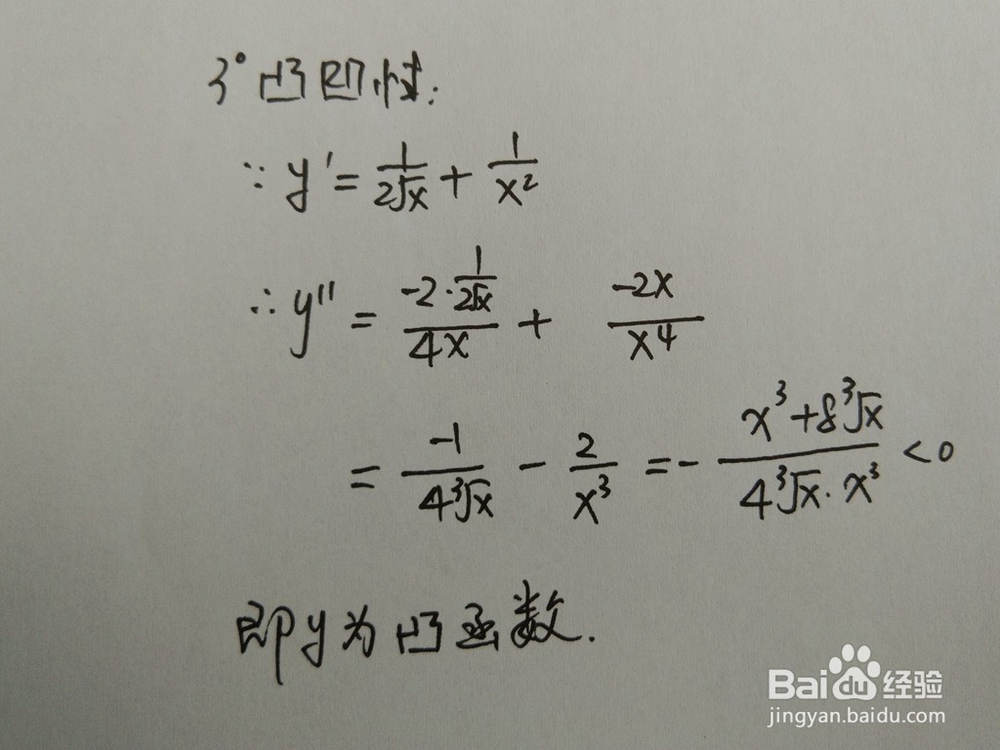 3° 凸凹性:
∵ y' = 1/(2√x) + 1/x²
∴ y'' = (-2·1/(2√x))/(4x) + (-2x)/x⁴
= -1/(4³√x) - 2/x³ = - (x³+8³√x)/(4³√x·x³) < 0
即y为凸函数.
Baidu经验
jingyan.baidu.com